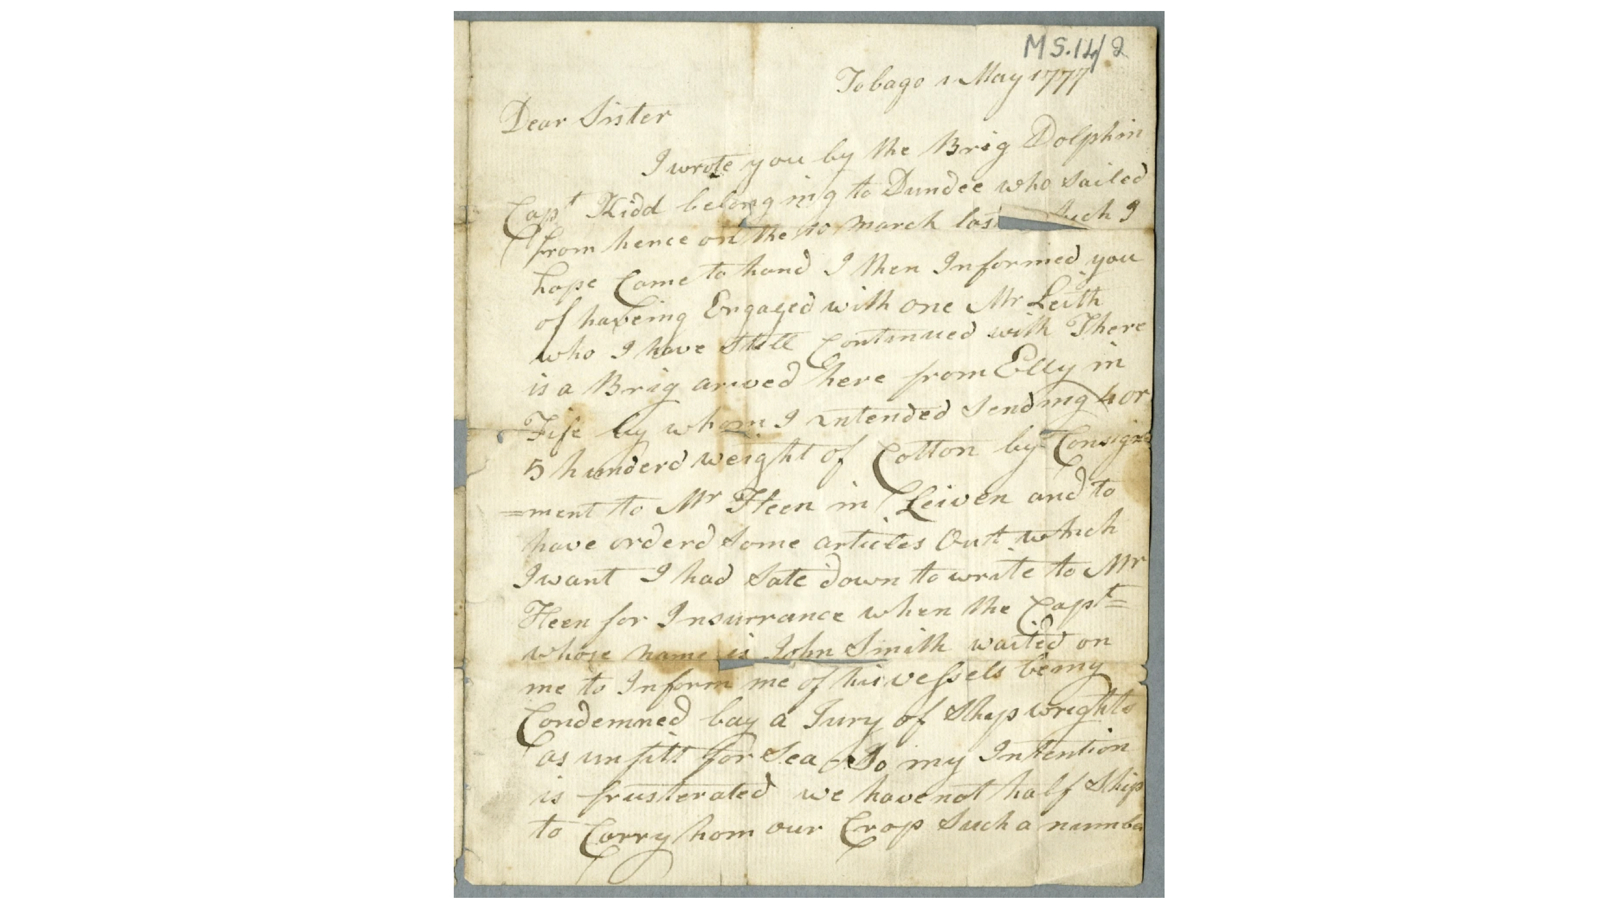 MS.14/2
Tobago 1 May 1777
Dear Sister
I wrote you by the Brig Dolphin
Capt Kidd belonging to Dundee who Sailed
from hence on the 10 March last Such I
hope Came to hand I then Informed you
of haveing Engaged with one Mr Leith
who I have Still Continued with There
is a Brig arived here from Elly in
Fife by whom I intended Sending 4 or
5 hunderd weight of Cotton by Consign
=ment to Mr Steen in Leiven and to
have orderd Some articles Out which
I want I had Sate down to write to Mr
Steen for Insurrance when the Capt=
whose name is John Smith waited on
me to Inform me of his vessels being
Condemned bay a Jury of Shipwrights
as unfitt for Sea So my Intention
is frusterated we have not half Ship
to Carry hom our Crop Such a numba